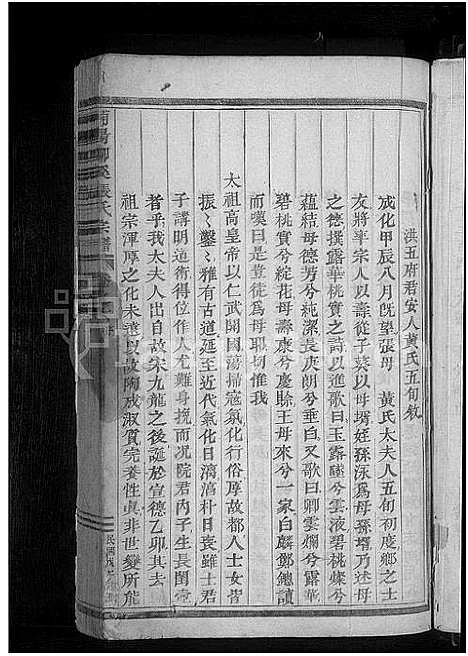 洪五府君安人黄氏五旬敘
成化甲辰八月既望張母 黄氏太夫人五旬初度鄉之士
友將率宗人以壽從子葵以母壻姪孫泳爲母孫壻乃述母
之德撰露華桃實之詩以進歌曰玉露瀼兮雲液碧桃燦兮
蘊結母德芳兮純潔長庚朗兮垂白又歌曰卿雲爛兮露華
碧桃實兮綻花母壽康兮慶賒王母來兮一家白麟鄭總讀
而嘆曰是豈徒爲母耶切惟我
太祖高皇帝以仁武開國蕩掃寇氛化行俗厚故都人士女皆
振〻鑿〻雅有古道延至近代氣化日漓澆朴日喪雖士君
子講明道術得位作人尤難身挽而况院君内子生長閨壼
者乎我太夫人出自故宋九龍之後誕於宣德乙卯其去
祖宗渾厚之化未遠以故陶成淑質完養性眞非世變所能
張氏宗譜
民國